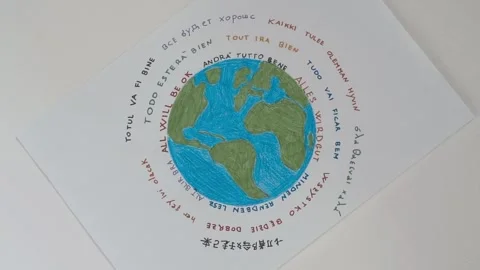 Все будет хорошо
KAIKKI TULEE OLEMAAN HYVIN
TOTUL VA FI BINE
TODO ESTERÁ BIEN
TOUT IRA BIEN
TUDO VAI FICAR BEM
ALL WILL BE OK
ANDRÁ TUTTO BENE
ALLES WIRD GUT
ALT BLIR BRA
MINDEN RENDBEN LESZ
WSZYSTKO BĘDZIE DOBRZE
her şey iyi olacak
όλα